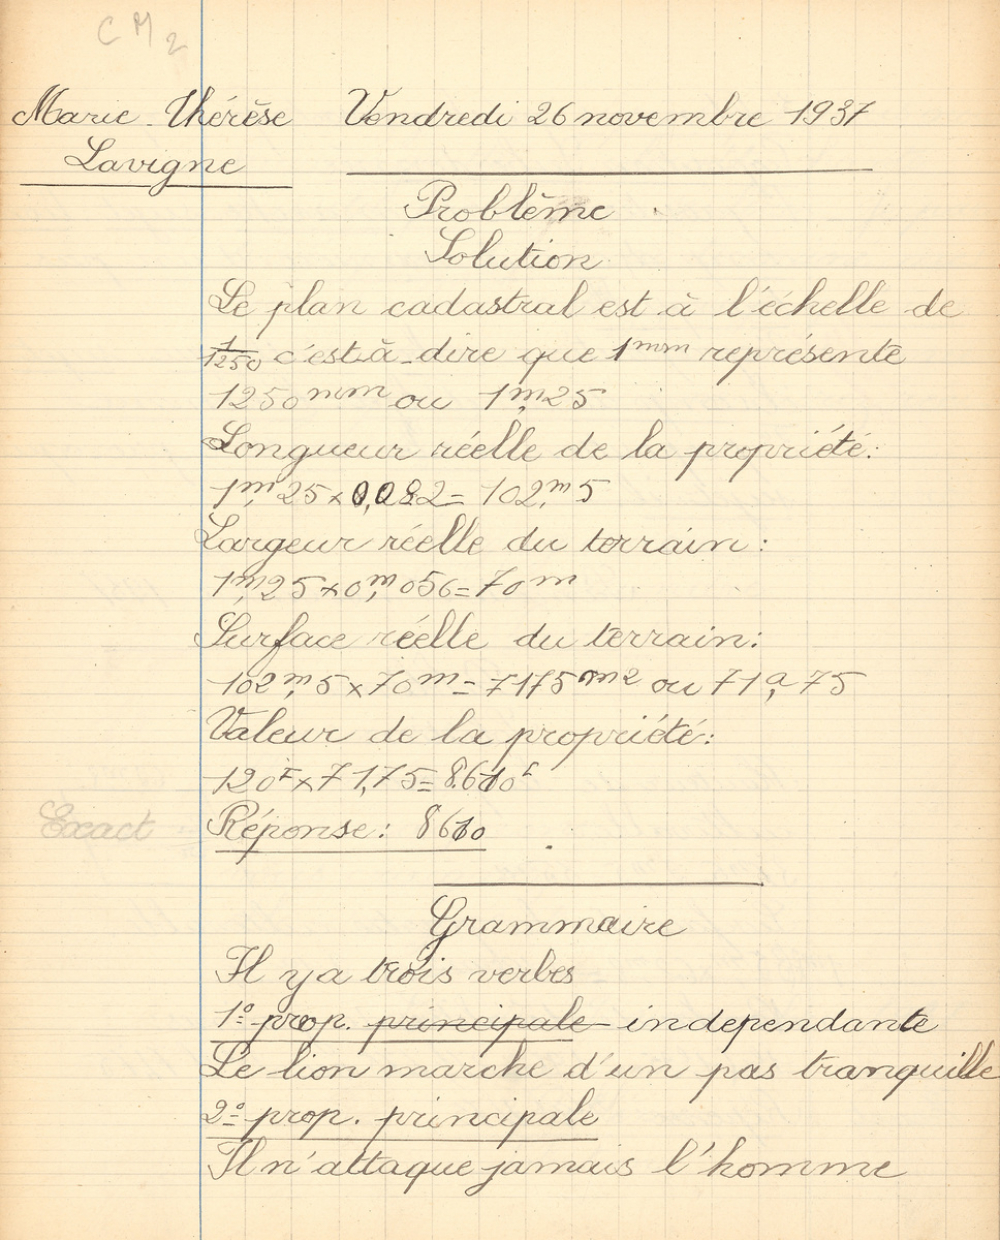 CM2
Marie-Thérèse Vendredi 26 novembre 1937
Lavigne
Problème
Solution
Le plan cadastral est à l'échelle de
1/1250 c'est-à-dire que 1mm représente
1250mm ou 1m,25
Longueur réelle de la propriété:
1m,25 x 0,082 = 102,m5
Largeur réelle du terrain:
1m,25 x 0,m056 = 70m
Surface réelle du terrain:
102m,5 x 70m = 7175m2 ou 71a,75
Valeur de la propriété:
120F x 71,75 = 8610F
Exact Réponse: 8610
Grammaire
Il y a trois verbes
1º prop. principale independante
Le lion marche d'un pas tranquille
2º prop. principale
Il n'attaque jamais l'homme